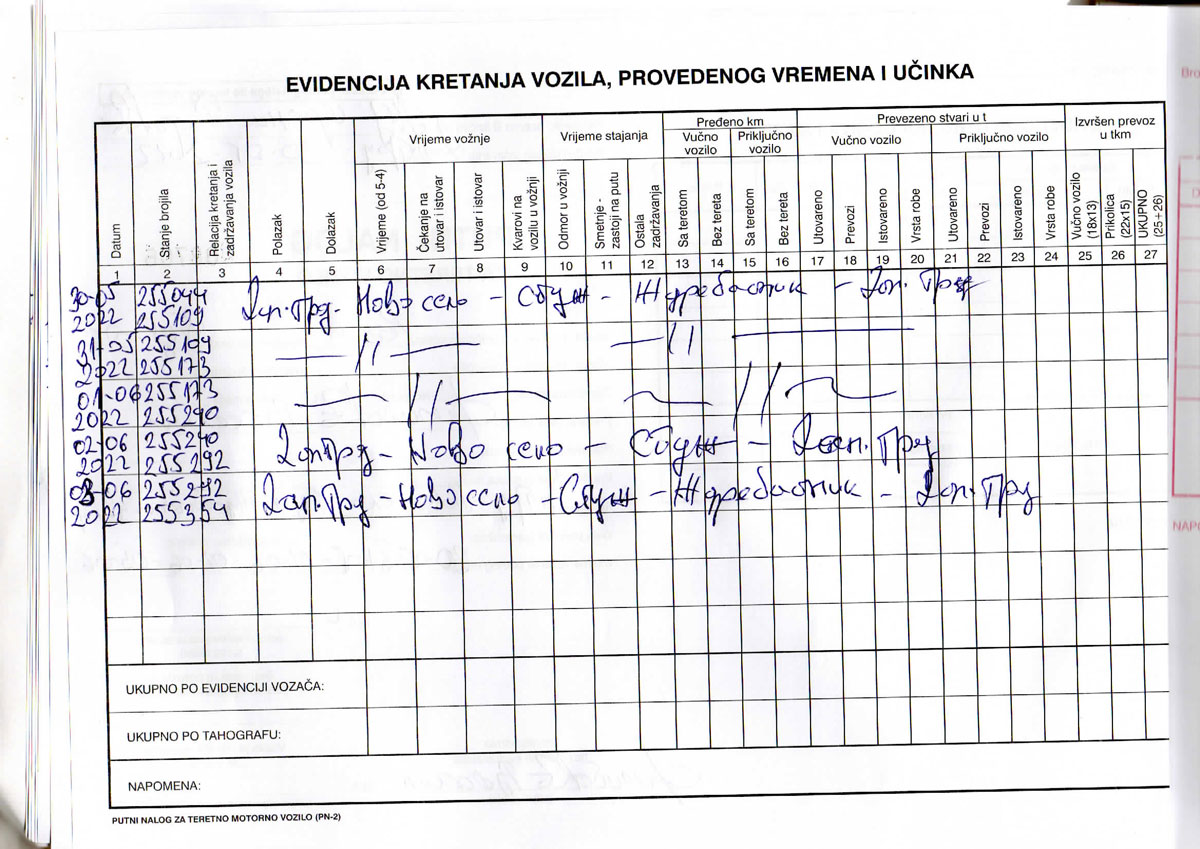 EVIDENCIJA KRETANJA VOZILA, PROVEDENOG VREMENA I UČINKA
Datum
Stanje brojila
Relacija kretanja i zadržavanja vozila
Polazak
Dolazak
Vrijeme vožnje
Vrijeme (od 5-4)
Čekanje na utovar i istovar
Utovar i istovar
Kvarovi na vozilu u vožnji
Vrijeme stajanja
Odmor u vožnji
Smetnje - zastoji na putu
Ostala zadržavanja
Pređeno km
Vučno vozilo
Priključno vozilo
Sa teretom
Bez tereta
Sa teretom
Bez tereta
Prevezeno stvari u t
Vučno vozilo
Priključno vozilo
Utovareno
Prevozi
Istovareno
Vrsta robe
Utovareno
Prevozi
Istovareno
Vrsta robe
Izvršen prevoz u tkm
Vučno vozilo (18x13)
Prikolica (22x15)
UKUPNO (25+26)
1 2 3 4 5 6 7 8 9 10 11 12 13 14 15 16 17 18 19 20 21 22 23 24 25 26 27
30-05 255044
2022 255109
Ново село - Спуж - Ждребаоник
31-05 255109 — // — — // —
2022 255173
01-06 255173 — // — — // —
2022 255240
02-06 255240
2022 255292
Ново село - Спуж
03-06 255292
2022 255354
Ново село - Спуж - Ждребаоник
UKUPNO PO EVIDENCIJI VOZAČA:
UKUPNO PO TAHOGRAFU:
NAPOMENA:
PUTNI NALOG ZA TERETNO MOTORNO VOZILO (PN-2)
Bro
NAPO